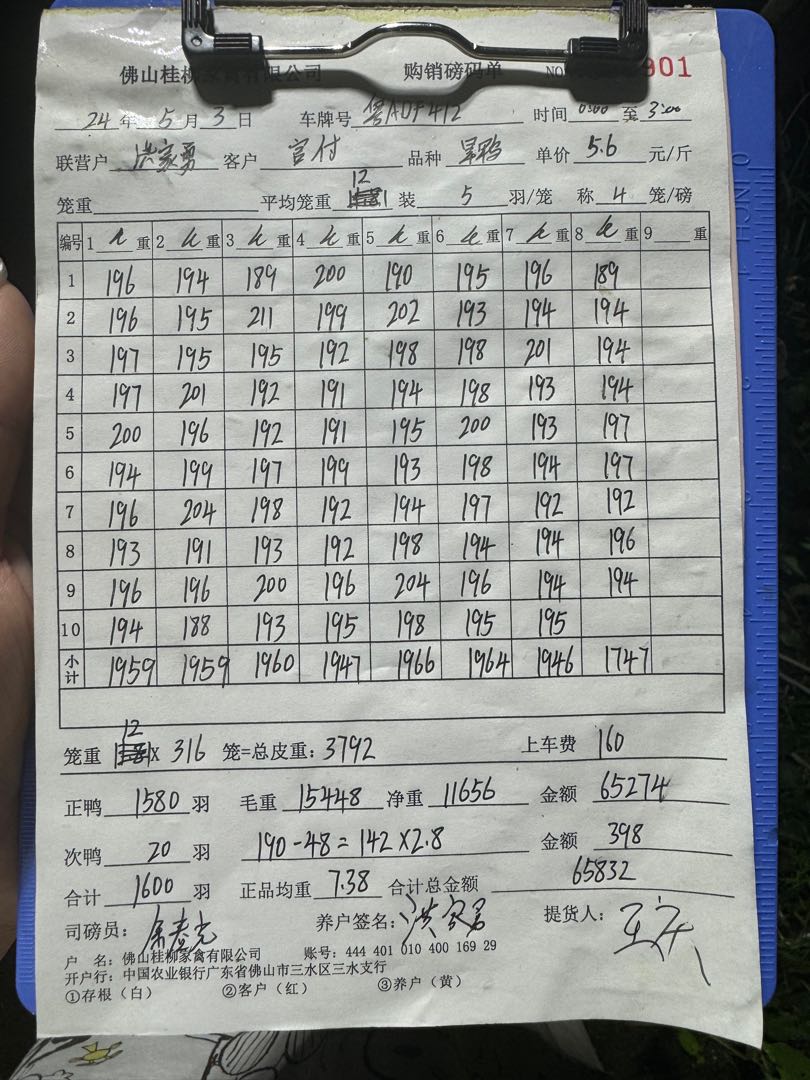 佛山桂柳家禽有限公司 购销磅码单 NO 901
24 年 5 月 3 日 车牌号 时间 0:00 至 3:00
联营户 洪家勇 客户 官付 品种 旱鸭 单价 5.6 元/斤
笼重 平均笼重 12 装 5 羽/笼 称 4 笼/磅
编号 1 重 2 重 3 重 4 重 5 重 6 重 7 重 8 重 9 重
1 196 194 189 200 190 195 196 189
2 196 195 211 199 202 193 194 194
3 197 195 195 192 198 198 201 194
4 197 201 192 191 194 198 193 194
5 200 196 192 191 195 200 193 197
6 194 199 197 199 193 198 194 197
7 196 204 198 192 194 197 192 192
8 193 191 193 192 198 194 194 196
9 196 196 200 196 204 196 194 194
10 194 188 193 195 198 195 195
小计 1959 1959 1960 1947 1966 1964 1946 1747
笼重 12 X 316 笼=总皮重：3792 上车费 160
正鸭 1580 羽 毛重 15448 净重 11656 金额 65274
次鸭 20 羽 190-48=142X2.8 金额 398
合计 1600 羽 正品均重 7.38 合计总金额 65832
司磅员： 养户签名：洪家勇 提货人：
户 名：佛山桂柳家禽有限公司 账号：444 401 010 400 169 29
开户行：中国农业银行广东省佛山市三水区三水支行
①存根（白） ②客户（红） ③养户（黄）